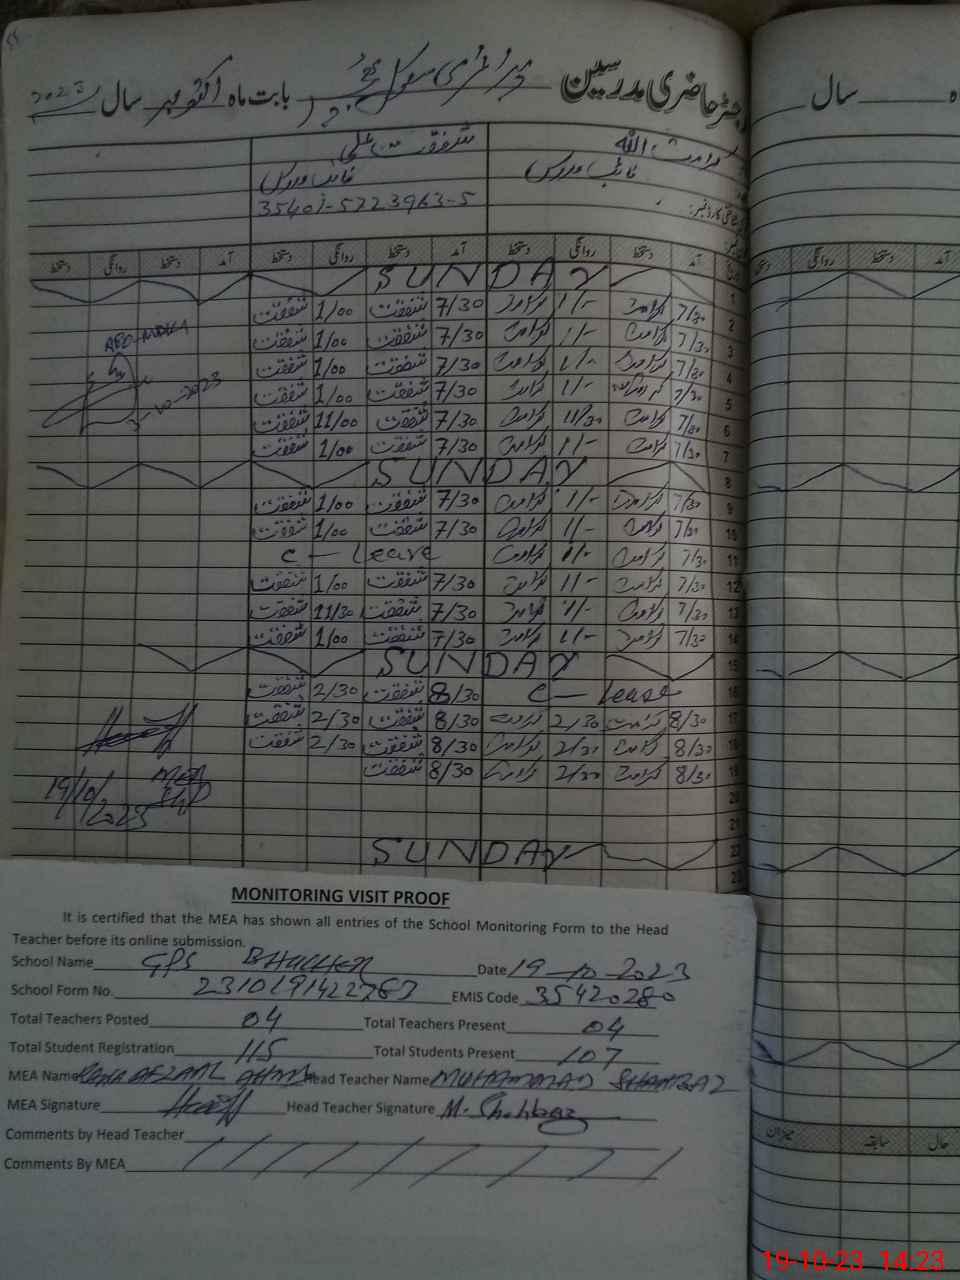 رجسٹر حاضری مدرسین پرائمری سکول بابت ماہ اکتوبر سال 2023
ماہ سال
کرامت اللہ شفقت علی
نائب مدرس نائب مدرس
35401-5723963-5
آمد دستخط روانگی دستخط آمد دستخط روانگی دستخط آمد دستخط روانگی دستخط
SUNDAY 1
7/30 کرامت 1/- کرامت 7/30 شفقت 1/00 شفقت 2
7/30 کرامت 1/- کرامت 7/30 شفقت 1/00 شفقت 3
7/30 کرامت 1/- کرامت 7/30 شفقت 1/00 شفقت 4
7/30 کرامت 1/- کرامت 7/30 شفقت 1/00 شفقت 5
7/30 کرامت 11/30 کرامت 7/30 شفقت 11/00 شفقت 6
7/30 کرامت 1/- کرامت 7/30 شفقت 1/00 شفقت 7
SUNDAY 8
7/30 کرامت 1/- کرامت 7/30 شفقت 1/00 شفقت 9
7/30 کرامت 1/- کرامت 7/30 شفقت 1/00 شفقت 10
7/30 کرامت 1/- کرامت C - Leave 11
7/30 کرامت 1/- کرامت 7/30 شفقت 1/00 شفقت 12
7/30 کرامت 1/- کرامت 7/30 شفقت 11/30 شفقت 13
7/30 کرامت 1/- کرامت 7/30 شفقت 1/00 شفقت 14
SUNDAY 15
C - Leave 8/30 شفقت 2/30 شفقت 16
8/30 کرامت 2/30 کرامت 8/30 شفقت 2/30 شفقت 17
8/30 کرامت 2/30 کرامت 8/30 شفقت 2/30 شفقت 18
8/30 کرامت 2/30 کرامت 8/30 شفقت 19
20
21
SUNDAY 22
23
-10-2023
MEA
19/10/2023
MONITORING VISIT PROOF
It is certified that the MEA has shown all entries of the School Monitoring Form to the Head
Teacher before its online submission.
School Name GPS BHUCHER Date 19-10-2023
School Form No. 2310191422783 EMIS Code 35420280
Total Teachers Posted 04 Total Teachers Present 04
Total Student Registration 115 Total Students Present 107
MEA Name RANA AFZAAL AHMAD Head Teacher Name MUHAMMAD SHAHBAZ
MEA Signature Head Teacher Signature M. Shahbaz
Comments by Head Teacher
Comments By MEA
میزان سابقہ حال
19-10-23 14:23